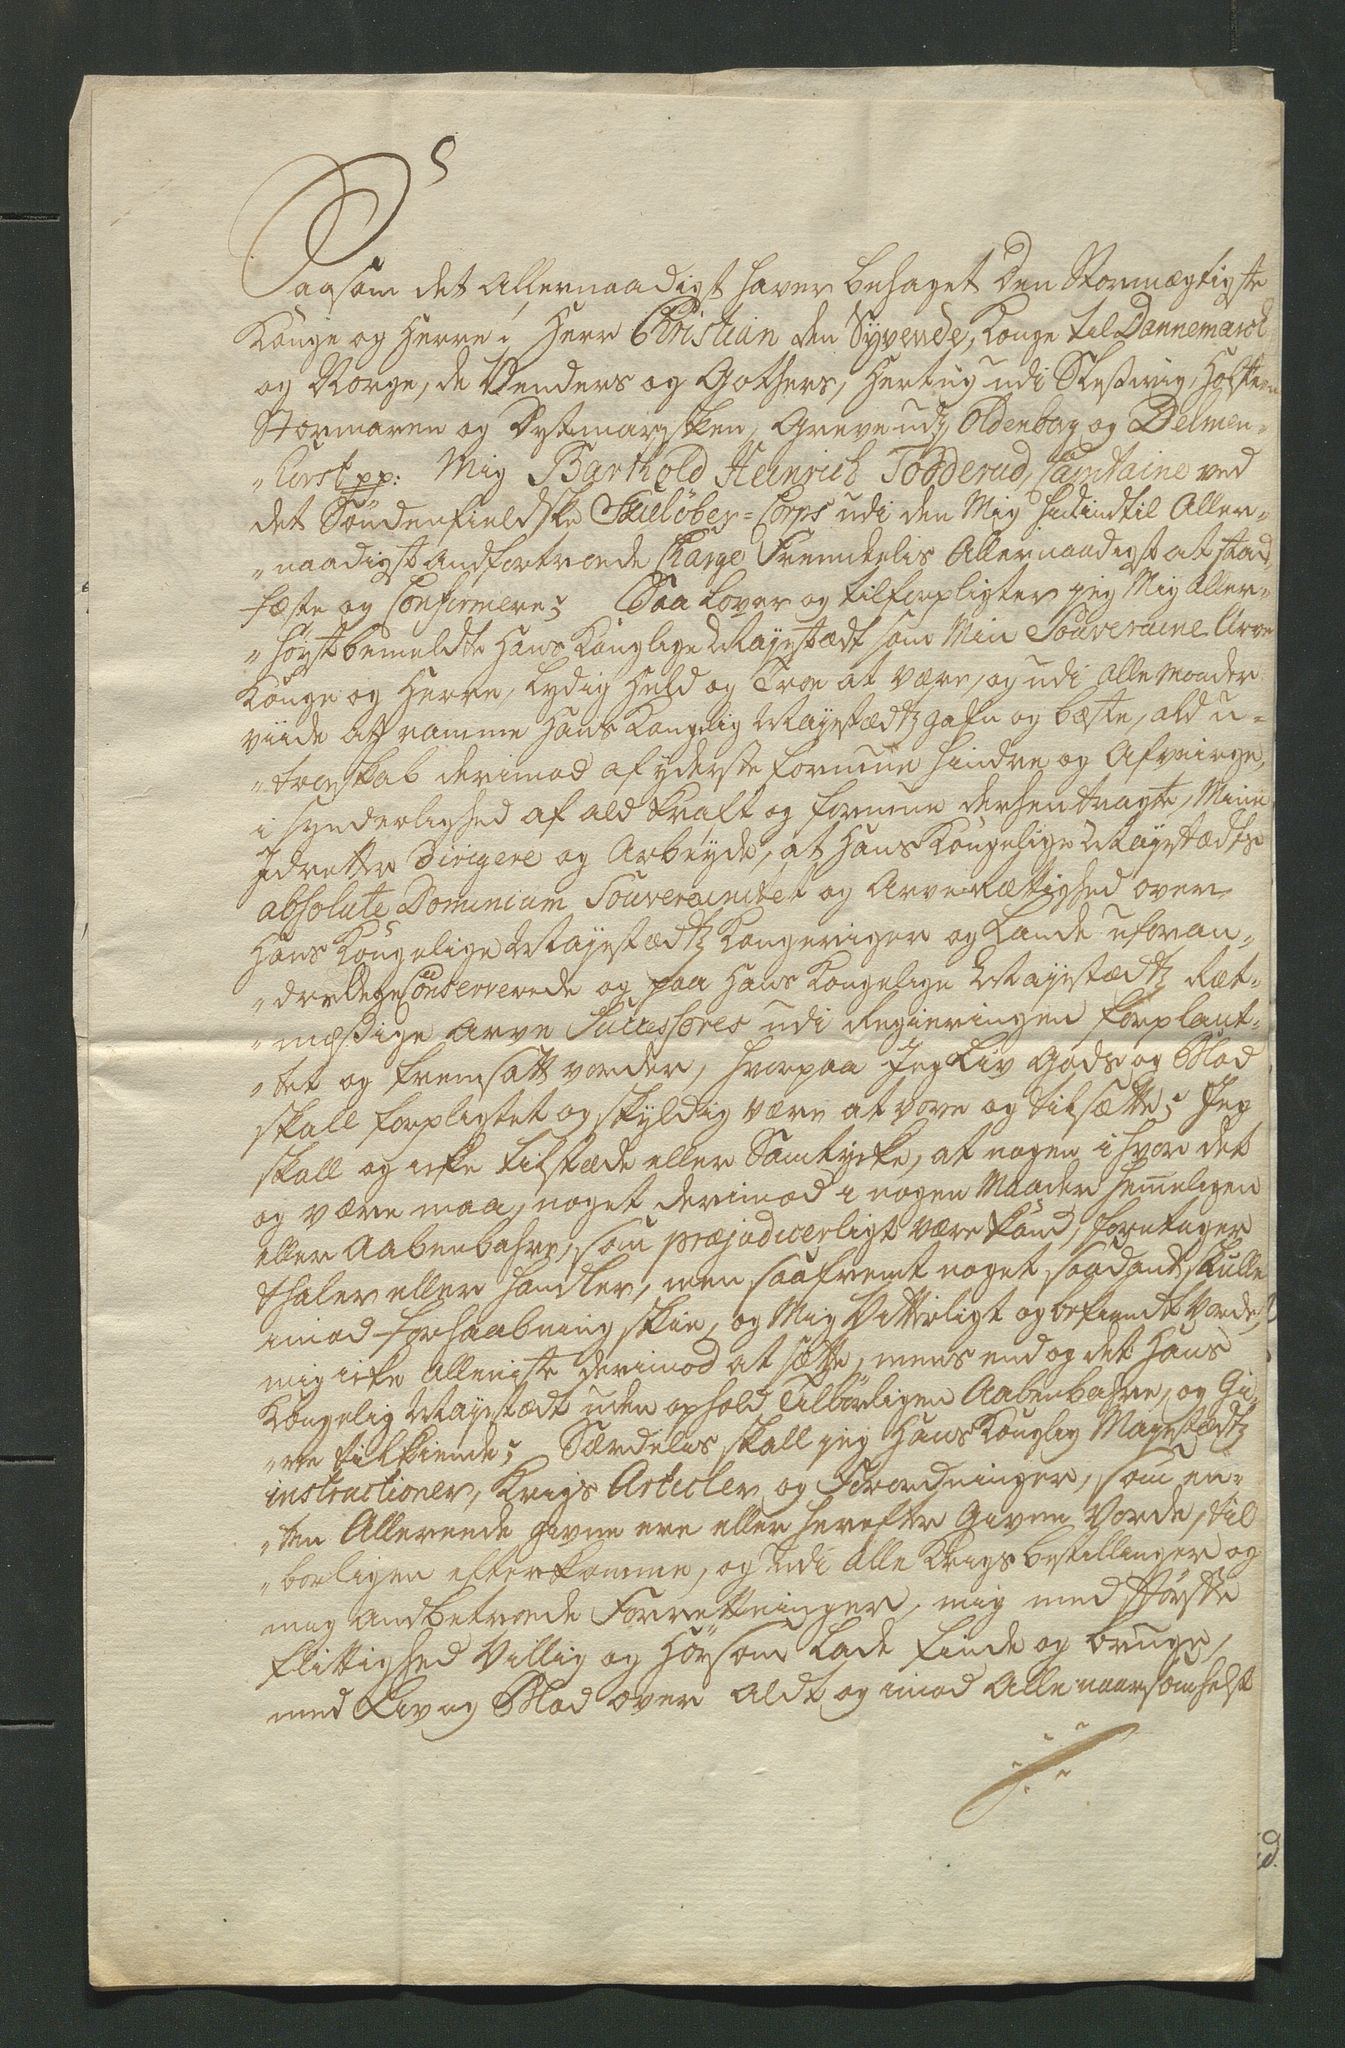 Saasom det Allernaadigst haver behaget Den Stormægtigste
Konge og Herre, Herr Christian den Syvende, Konge til Dannemarck
og Norge, de Venders og Gothers, Hertug udi Slesvig, Holsten
Stormaren og Dytmarsken, Greve udi Oldenborg og Delmen-
"horst pp: Mig Barthold Heinrich Todderud, Capitaine ved
det Søndenfieldske Skieløber-Corps udi den Mig hidindtil Aller-
"naadigst Andfortroede Charge Fremdelis Allernaadigst at stad
fæste og Confirmere; Saa Lover og tilforpligter jeg Mig Aller-
"høystbemeldte Hans Konglige Mayestædt som Min Souveraine Arve
Konge og Herre, Lydig Huld og Troe at være, og udi Alle Maader
viide at ramme Hans Kongelig Mayestædtz gafn og bæste, ald u-
"troeskab derimod af yderste formue hindre og Afværge,
i synderlighed af ald Kraft og formue derhen tragte, Mine
Idretter dirigere og Arbeyde, at Hans Kongelige Mayestædts
absolute Dominium Souverainitet og Arverættighed over
Hans Kongelige Mayestædtz Kongeriger og Lande uforan-
"derlige Conserverede og paa Hans Kongelige Mayestædtz Ræt-
"mæssige Arve Successores udi Regieringen forplant-
"tet og fremsatt vorder, hvorpaa Jeg Liv Gods og Blod
skall forpligtet og skyldig være at vove og tilsætte; Jeg
skall og icke tilstæde eller Samtycke, at nogen i hvor det
og være maa, noget derimod i nogen Maader hemeligen
eller Aabenbahre, som præjudicerligt være kand, foretager
thaler eller handler, men saafremt noget saadant skulle
imod forhaabning skie, og Mig Vitterligt og befiendt vorde,
mig icke Alleniste derimod at sætte, mens end og det Hans
Kongelig Mayestædt uden ophold Tilbørligen Aabenbahre, og Gi-
"ve tilkiende; Særdelis skall jeg Hans Konglig Mayestædtz
instructioner, Krigs Articler og Forordninger, som en-
"ten Allereede givne ere eller herefter Given Vorde, til
"børligen efterkomme, og udi Alle Krigsbestillinger og
mig Andbetroede Forrettninger, mig med største
flittighed Villig og Hørsom Lade finde og bruge,
med Liv og Blod over Alt og imod Alle naarsomhelst